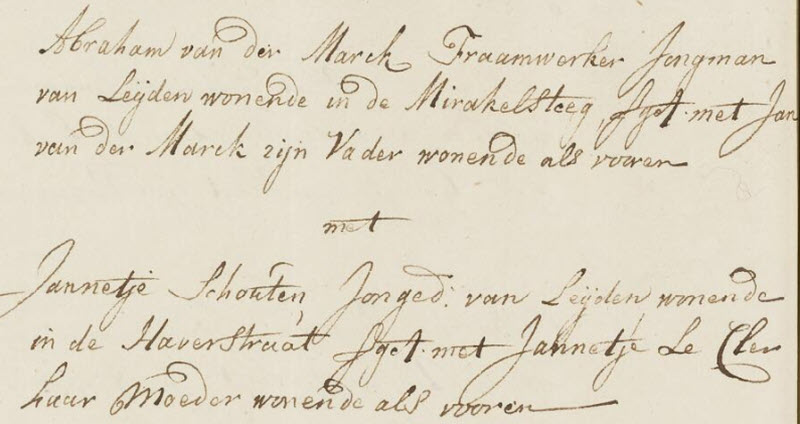 Abraham van der Marck Fraamwerker Jongman
van Leijden wonende in de Mirakelsteeg, Sget. met Jan
van der Marck zijn Vader wonende als vooren
met
Jannetje Schouten Jonged: van Leijden, wonende
in de Haverstraat Sget. met Jannetje Le Cler
haar Moeder wonende als vooren